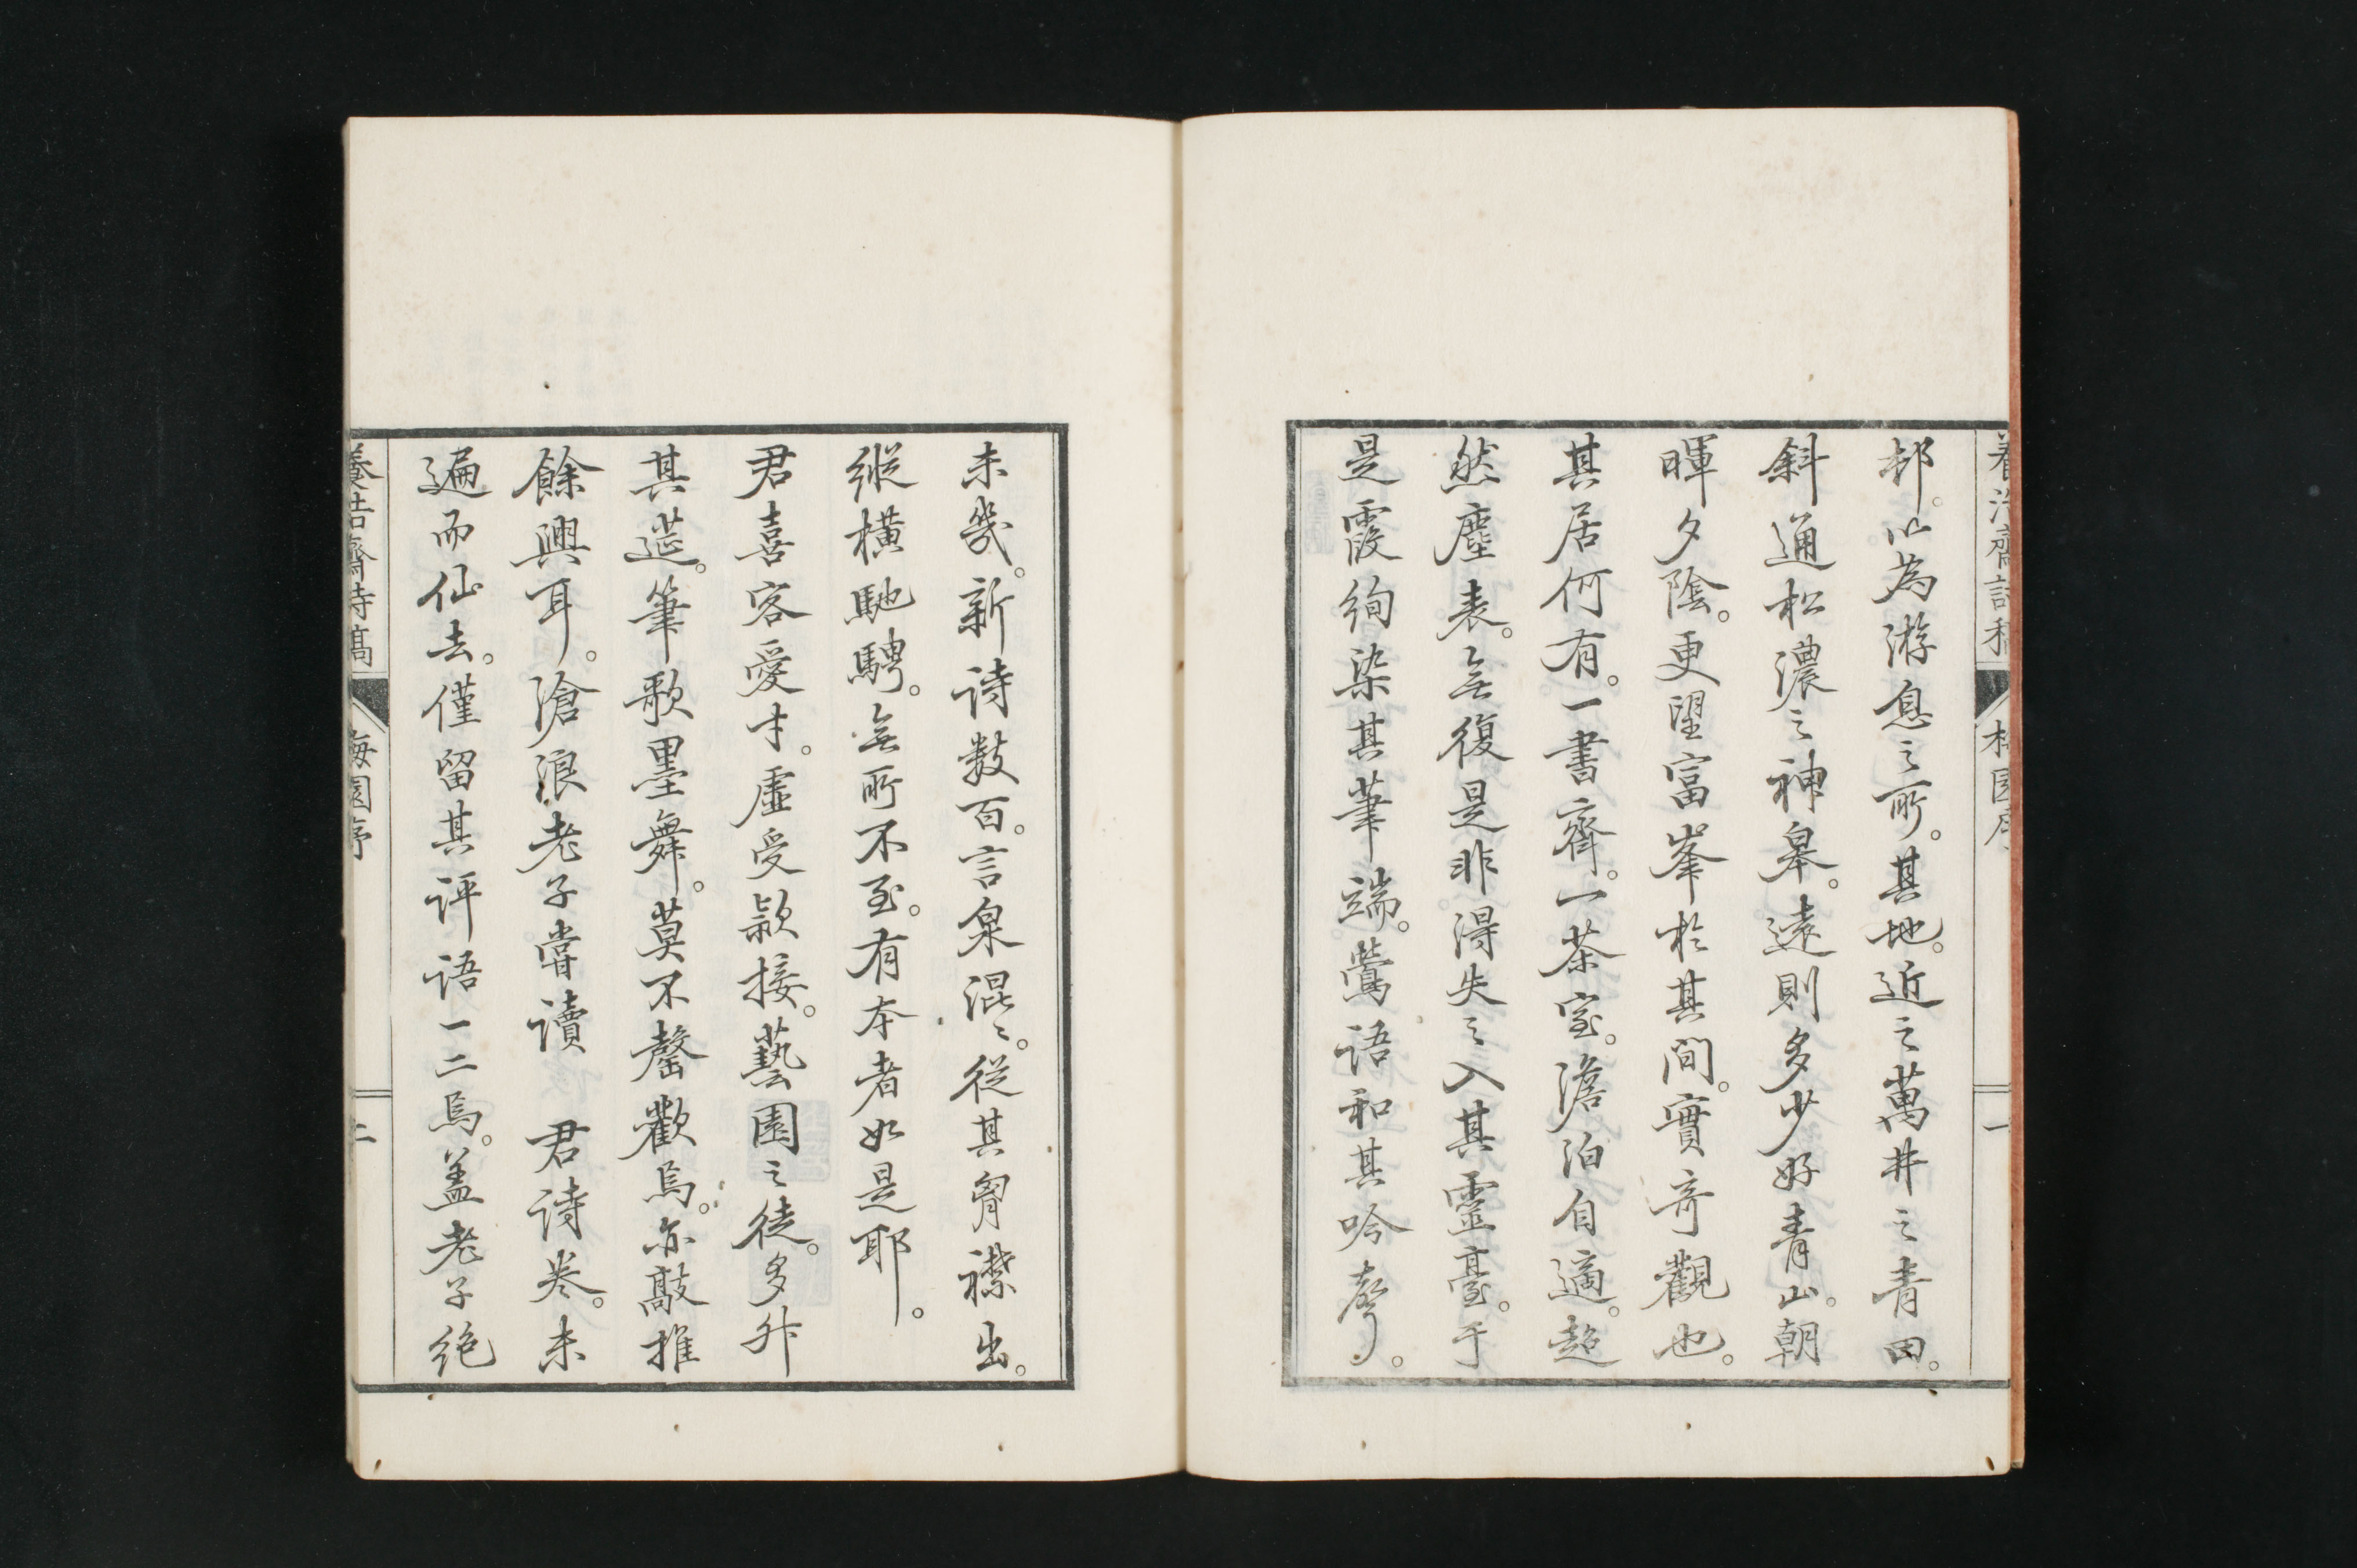 邨。以為游息之所。其地。近之萬井之青田。
斜通松濃之神皋。遠則多少好青山。朝
暉夕陰。更望富峯於其間。實奇觀也。
其居何有。一書齋。一茶室。澹泊自適。超
然塵表。無復是非得失之入其靈臺。于
是霞絢染其筆端。鶯語和其吟聲。
未幾。新詩數百。言泉混〻。從其胷襟出。
縱橫馳騁。無所不至。有本者如是耶。
君喜客愛才。虛受款接。藝園之徒。多升
其筵。筆歌墨舞。莫不罄歡焉。亦敲推
餘興耳。滄浪老子嘗讀 君詩卷。未
遍而仙去。僅留其評語一二焉。盖老子絶
養浩齋詩稿
梅園序
一
養浩齋詩稾
梅園序
二